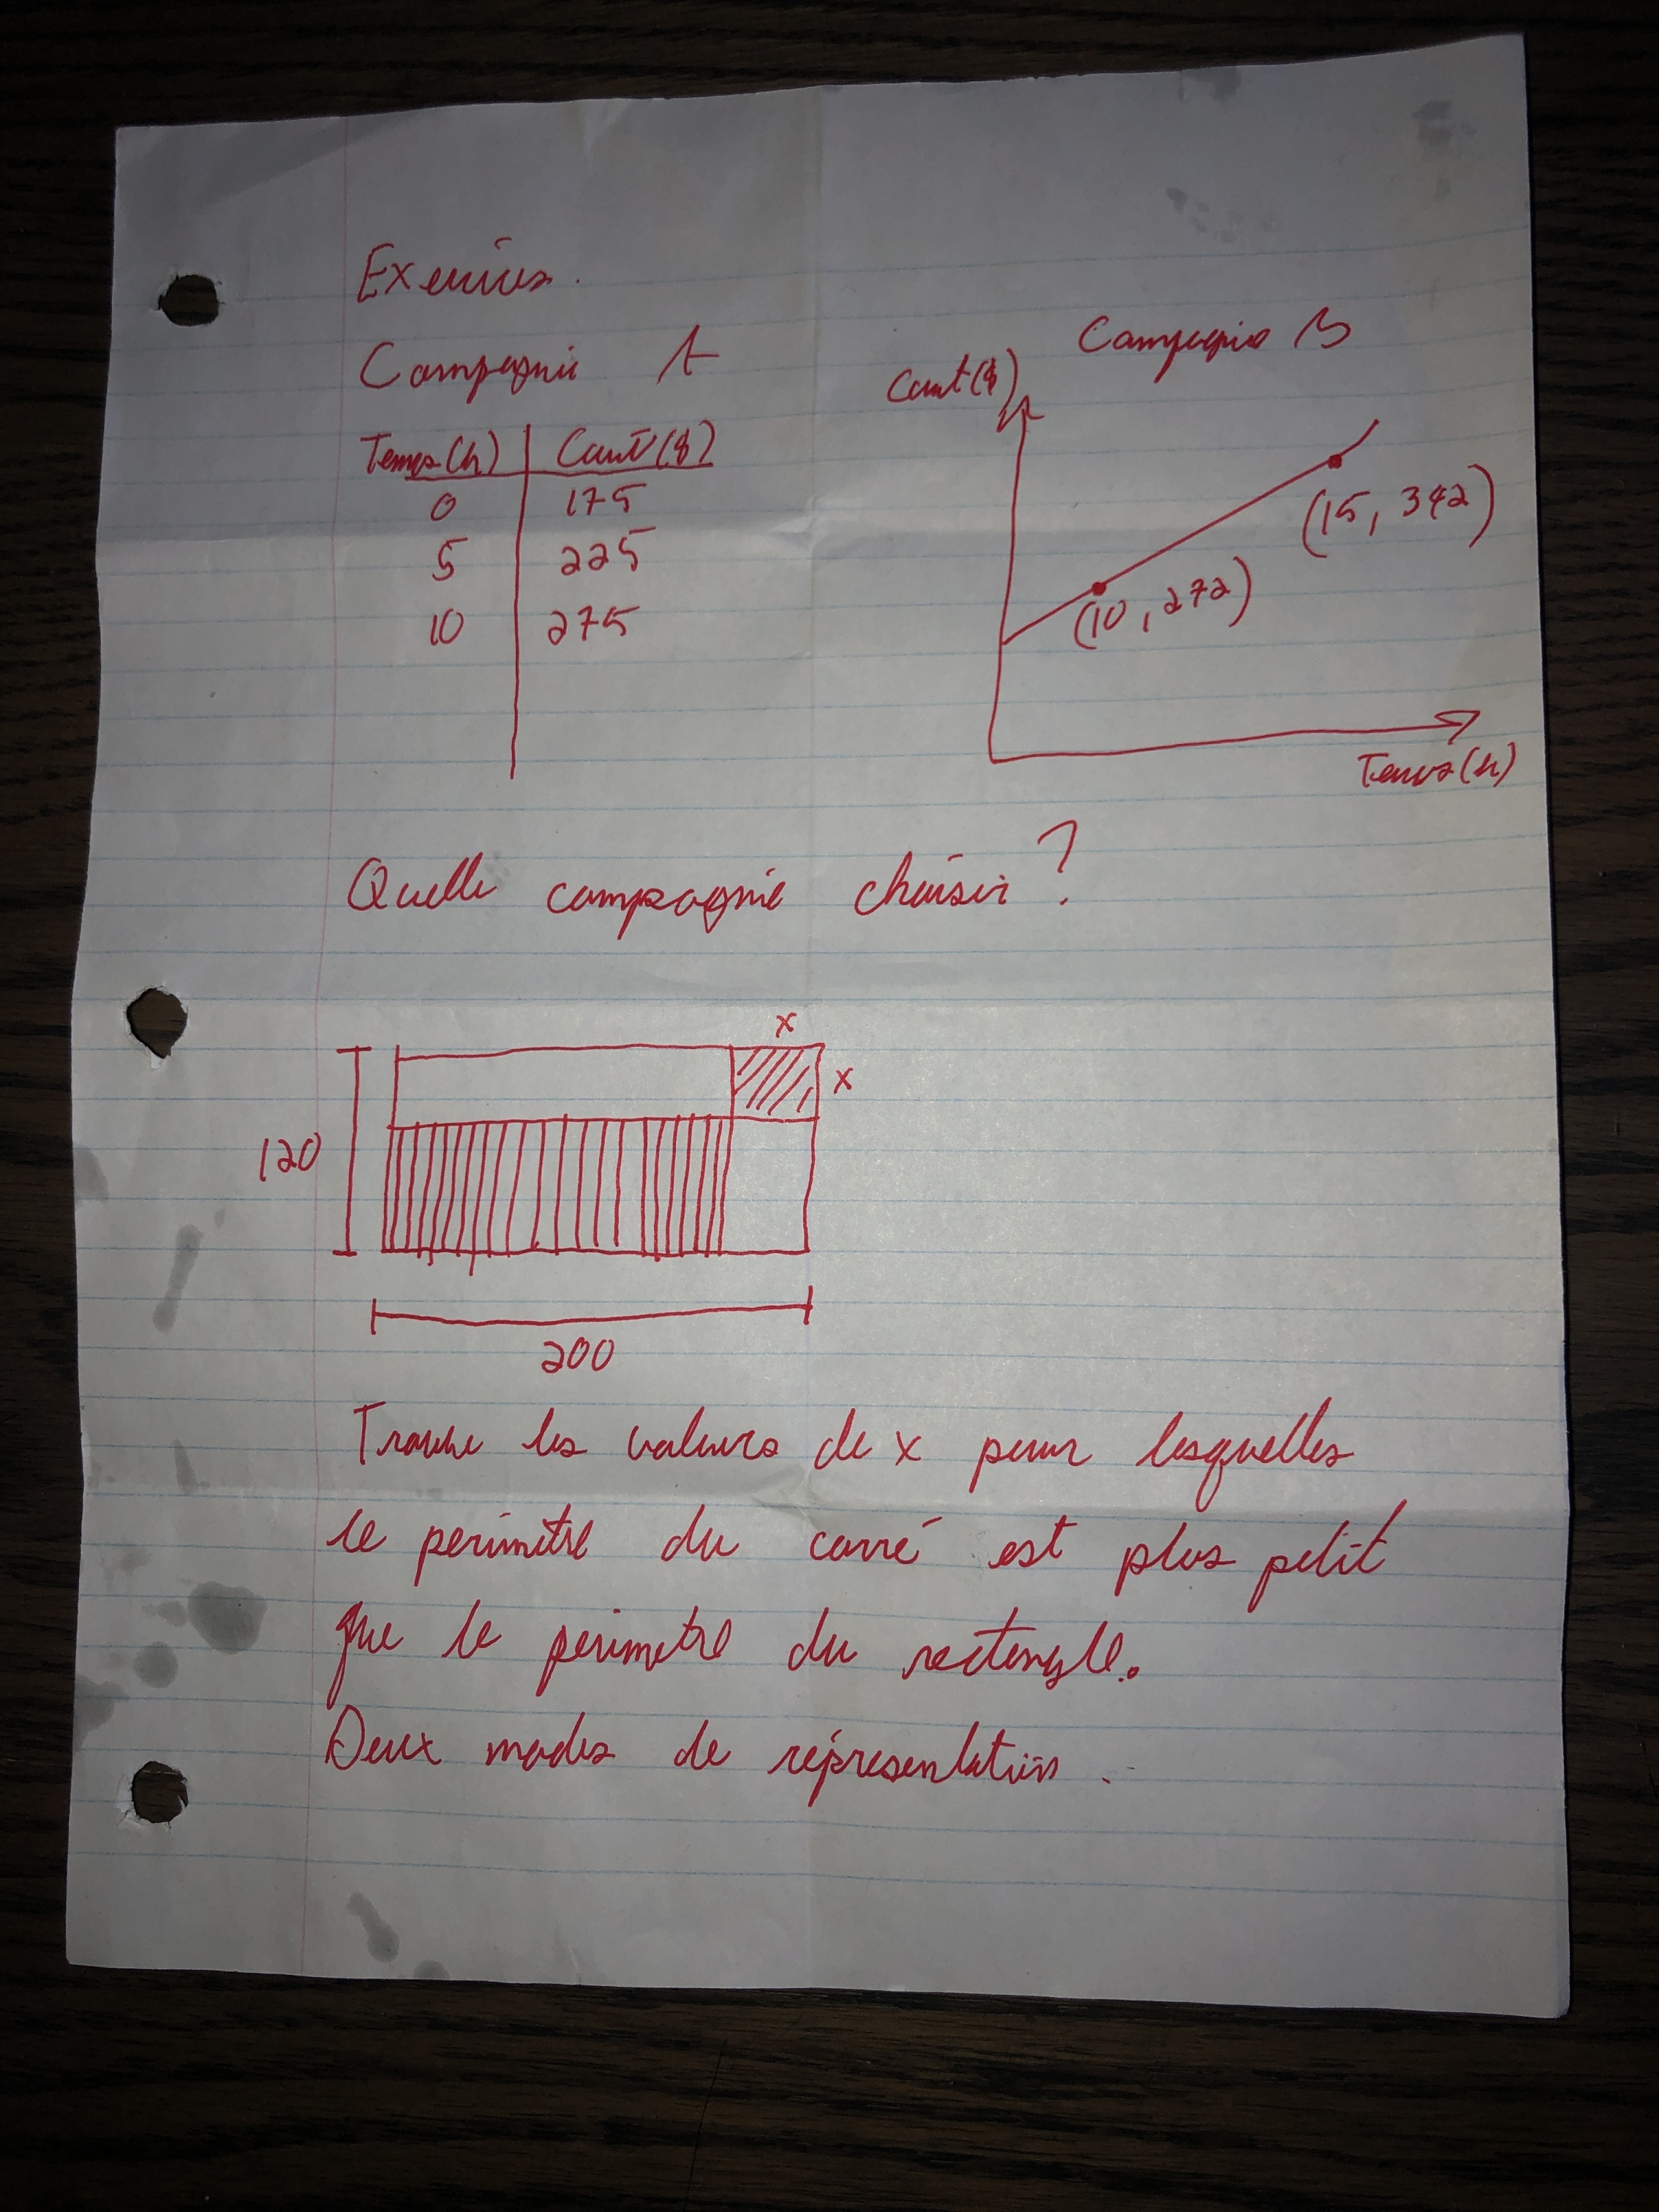 Exercices.
Compagnie A
Temps(h) Coût($)
0 175
5 225
10 275
Compagnie B
Cout($)
(15, 342)
(10, 272)
Temps(h)
Quelle compagnie choisir?
x
x
120
200
Trouve les valeurs de x pour lesquelles
le périmètre du carré est plus petit
que le périmetre du rectangle.
Deux modes de répresentation.